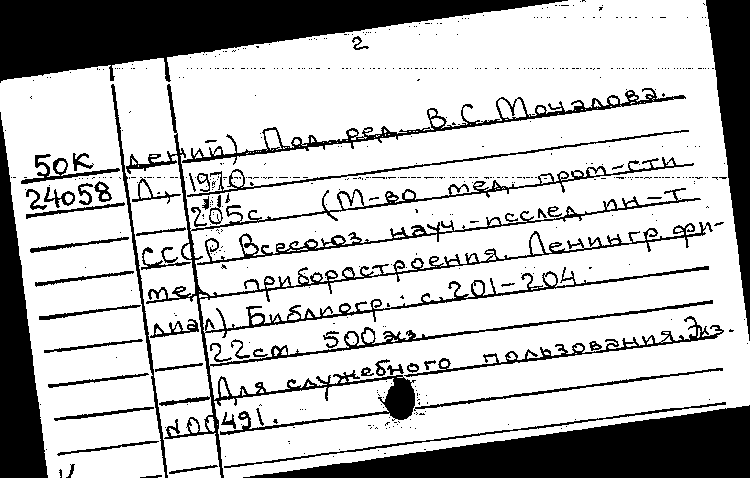 2
50К дений). Под ред. В.С. Мочалова.
24058 Л., 1970.
205с. (М-во мед. пром-сти
СССР. Всесоюз. науч.-исслед. ин-т
мед. приборостроения. Ленингр. фи-
лиал). Библиогр.: с. 201-204.
22см. 500 экз.
Для служебного пользования. Экз.
№00491.